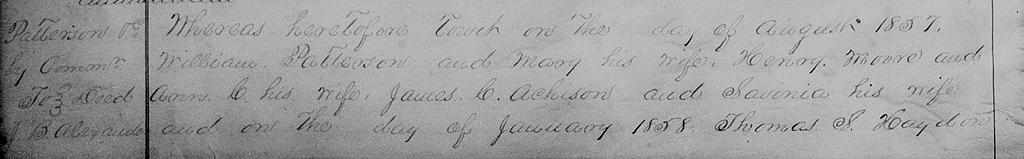 Patterson &c Whereas heretofore Towit on the day of August 1857.
by Commr. William Patterson and Mary his wife, Henry Moore and
To } Deed Ann C. his wife, James C. Achison and Savinia his wife
J. B. Alexander and on the day of January 1858 Thomas S. Haydon